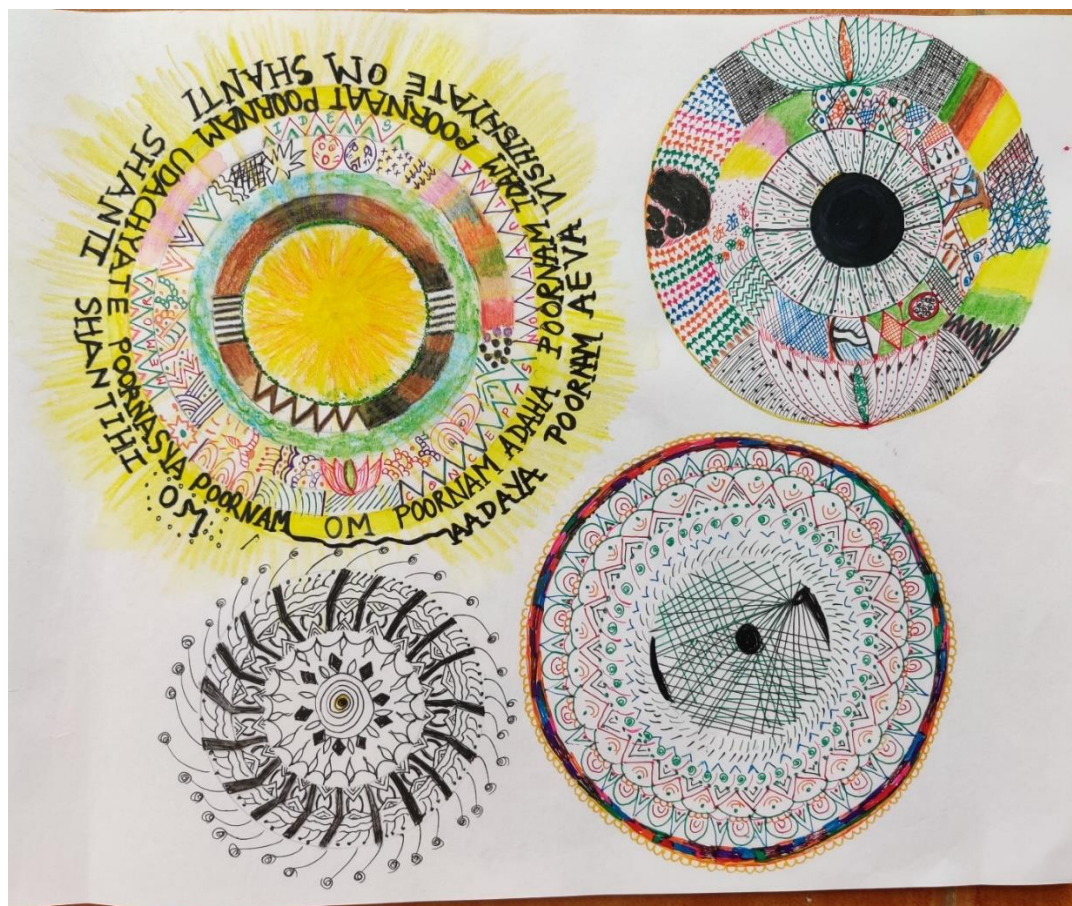 OM POORNAM ADAHA POORNAM IDAM POORNAAT POORNAM UDACHYATE POORNASYA POORNAM
AADAYA POORNAM AEVA VISHISHYATE OM SHANTI SHANTI SHANTIHI
OM
IDEAS
INTUITION
CONCEPTS